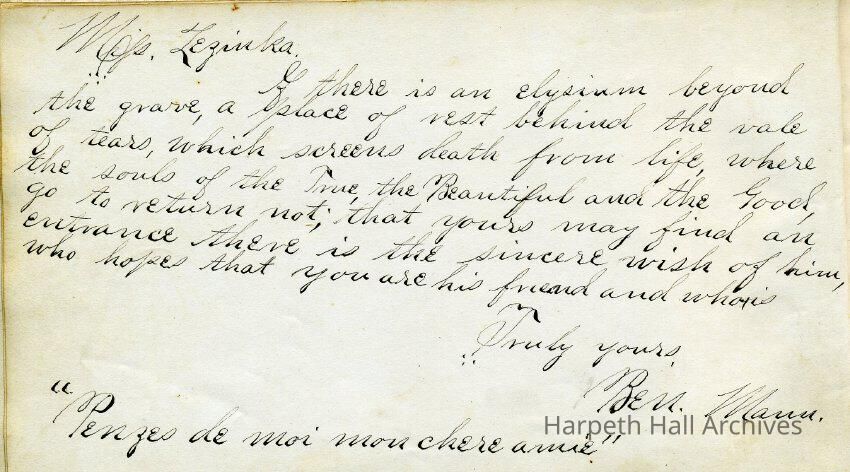 Miss. Lezinka.
If there is an elysium beyond
the grave, a place of rest behind the vale
of tears, which screens death from life, where
the souls of the True, the Beautiful and the Good,
go to return not; that yours may find an
entrance there is the sincere wish of him,
who hopes that you are his friend and who is
Truly yours,
Ben. Mann.
Harpeth Hall Archives
"Penzes de moi mon chere amie"